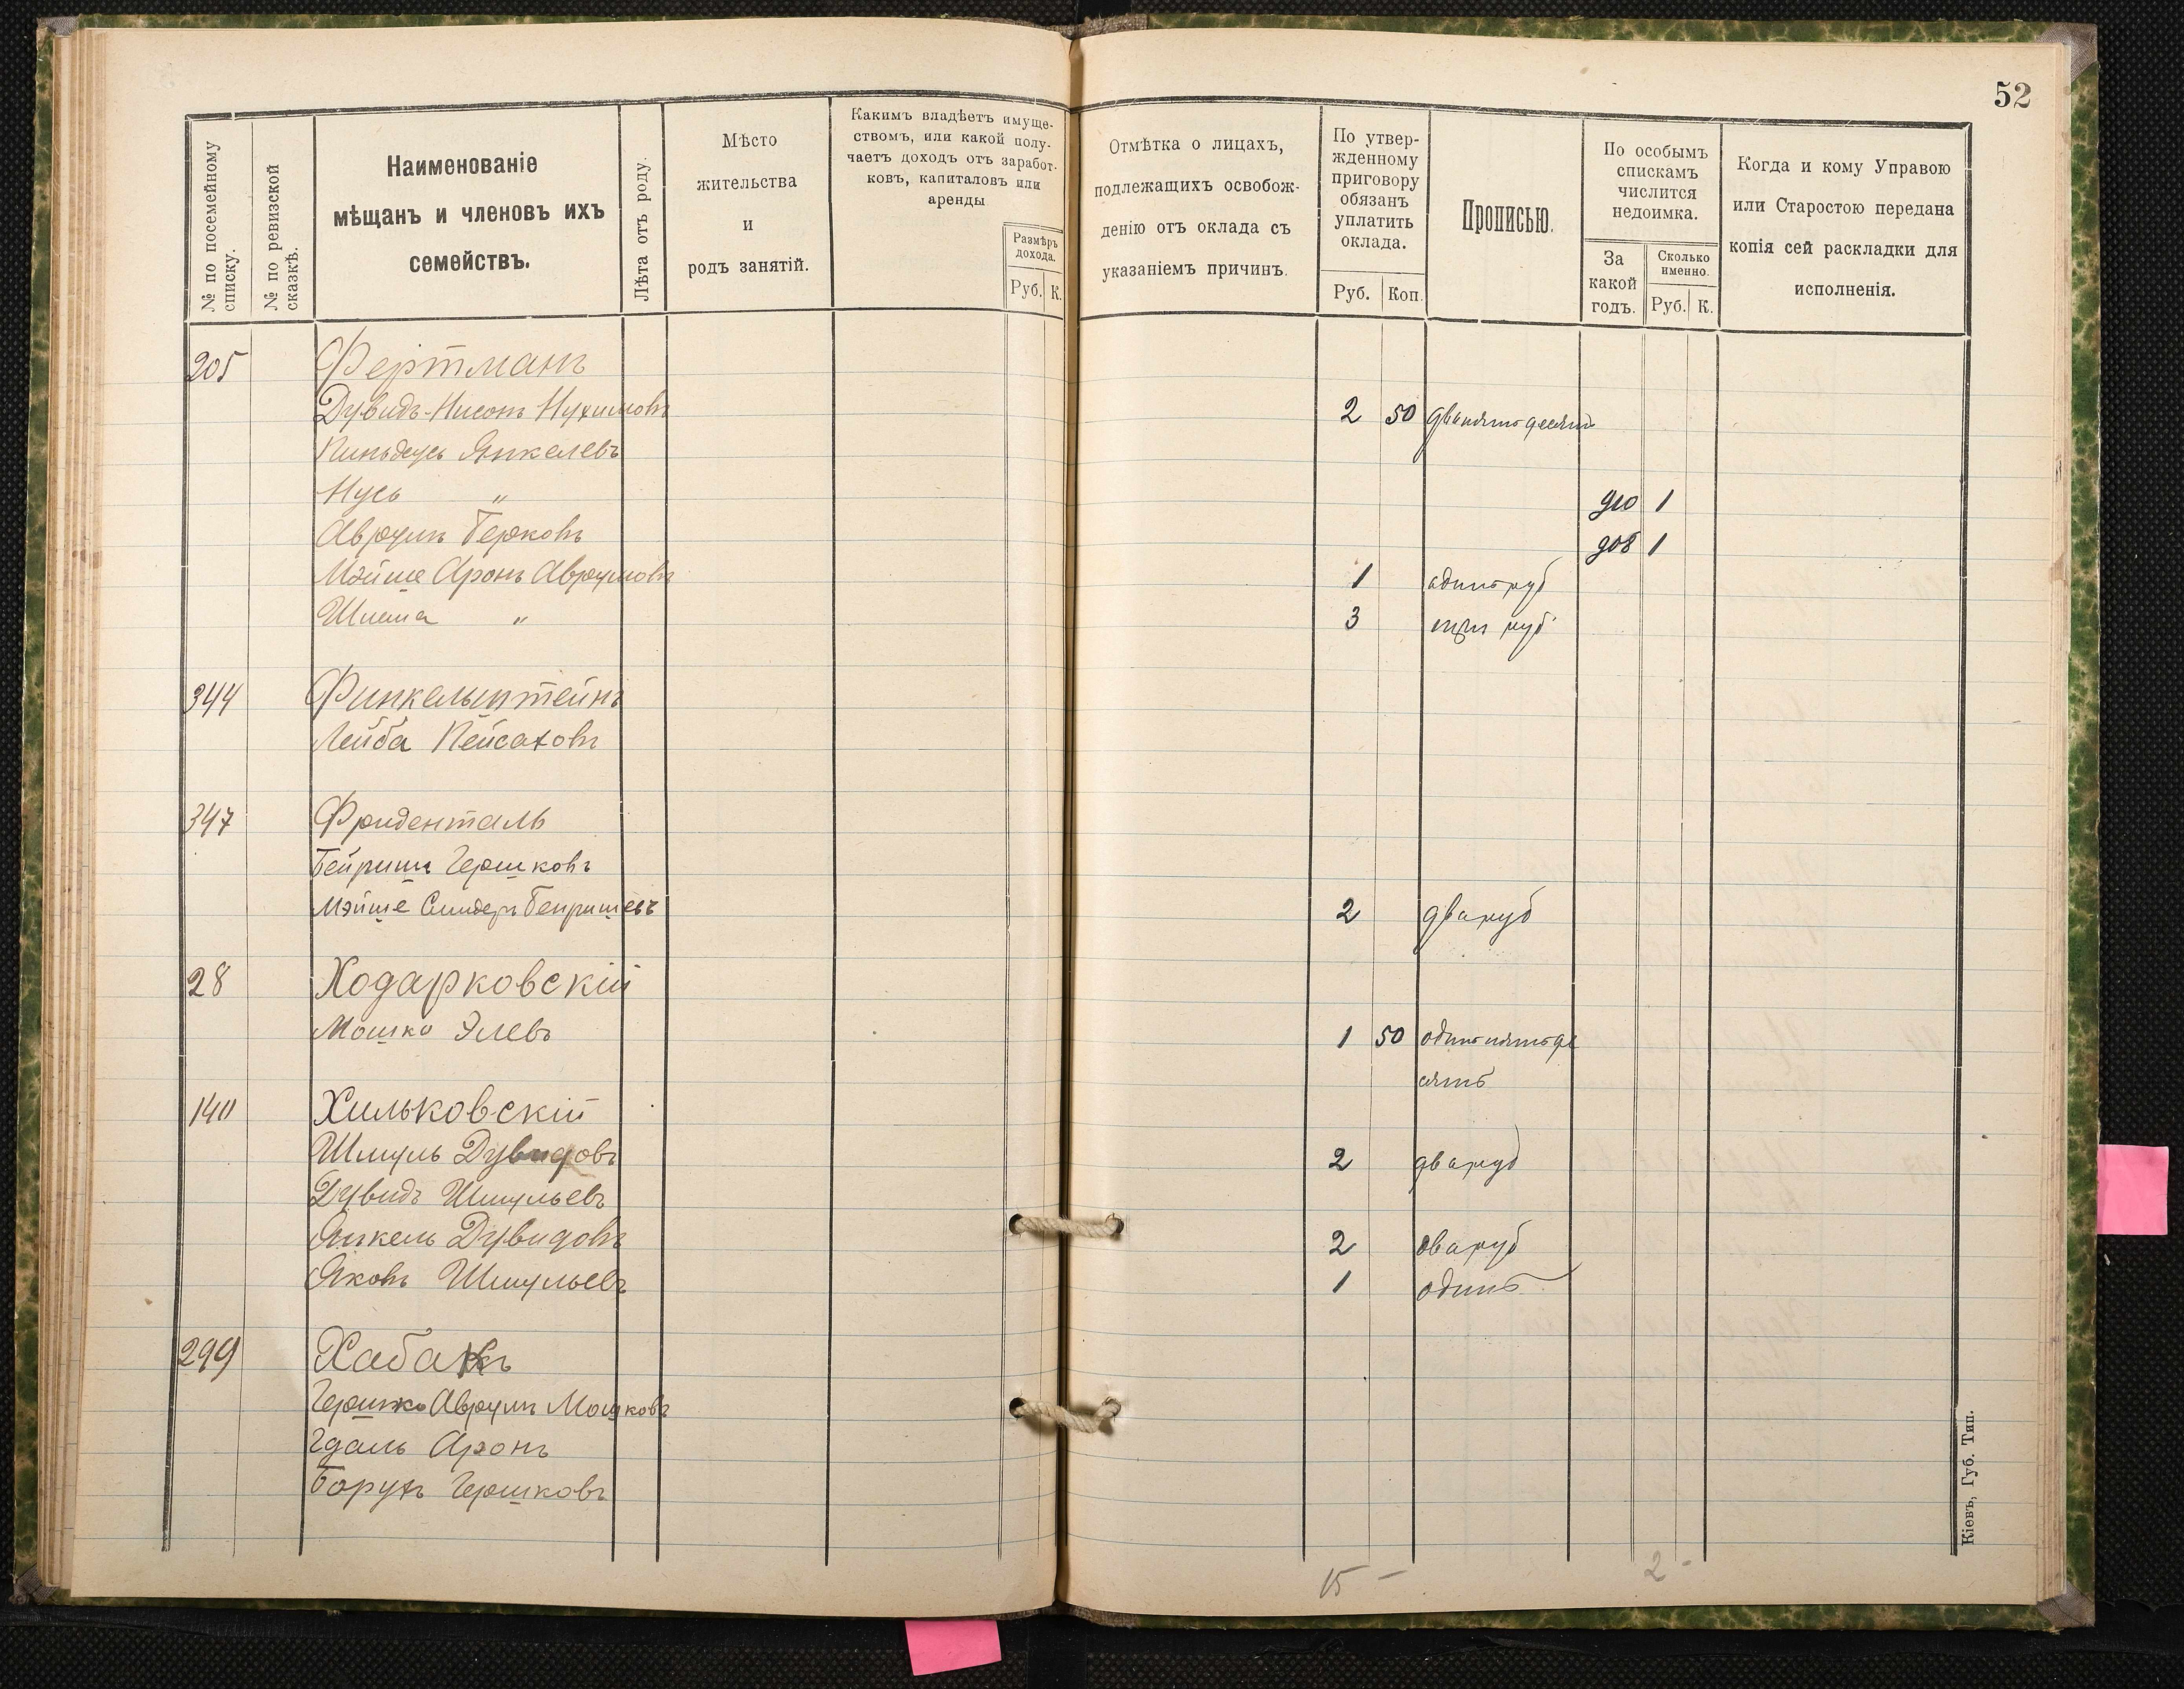 52
№ по посемейному списку.
№ по ревизской сказкѣ.
Наименованіе
мѣщанъ и членовъ ихъ
семействъ.
Лѣта отъ роду.
Мѣсто
жительства
и
родъ занятій.
Какимъ владѣетъ имуще-
ствомъ, или какой полу-
чаетъ доходъ отъ заработ-
ковъ, капиталовъ или
аренды
Размѣръ
дохода.
Руб. К.
Отмѣтка о лицахъ,
подлежащихъ освобож-
денію отъ оклада съ
указаніемъ причинъ.
По утвер-
жденному
приговору
обязанъ
уплатить
оклада.
Руб. Коп.
Прописью.
По особымъ
спискамъ
числится
недоимка.
За
какой
годъ.
Сколько
именно.
Руб. К.
Когда и кому Управою
или Старостою передана
копія сей раскладки для
исполненія.
205 Фертманъ
Дувидъ-Нисонъ Нухимовъ 2 50 два пятьдесятъ
Пиньхусъ Янкелевъ
Нусь " 910 1
Аврумъ Берковъ 908 1
Мойше Аронъ Аврумовъ 1 одинъ руб
Шлема " 3 три руб
344 Финкельштейнъ
Лейба Пейсаховъ
347 Фриденталь
Бейришъ Гершковъ
Мойше Бейришевъ 2 два руб
28 Ходарковскій
Мошко Элевъ 1 50 одинъ пятьде
сятъ
140 Хильковскій
Шмуль Дувидовъ 2 два руб
Дувидъ Шмульевъ
Янкель Дувидовъ 2 два руб
Яковъ Шмульевъ 1 одинъ
299 Хабакъ
Гершко Аврумъ Мошковъ
Гдаль Аронъ
Борухъ Гершковъ
15 – 2 -
Кіевъ, Губ. Тип.